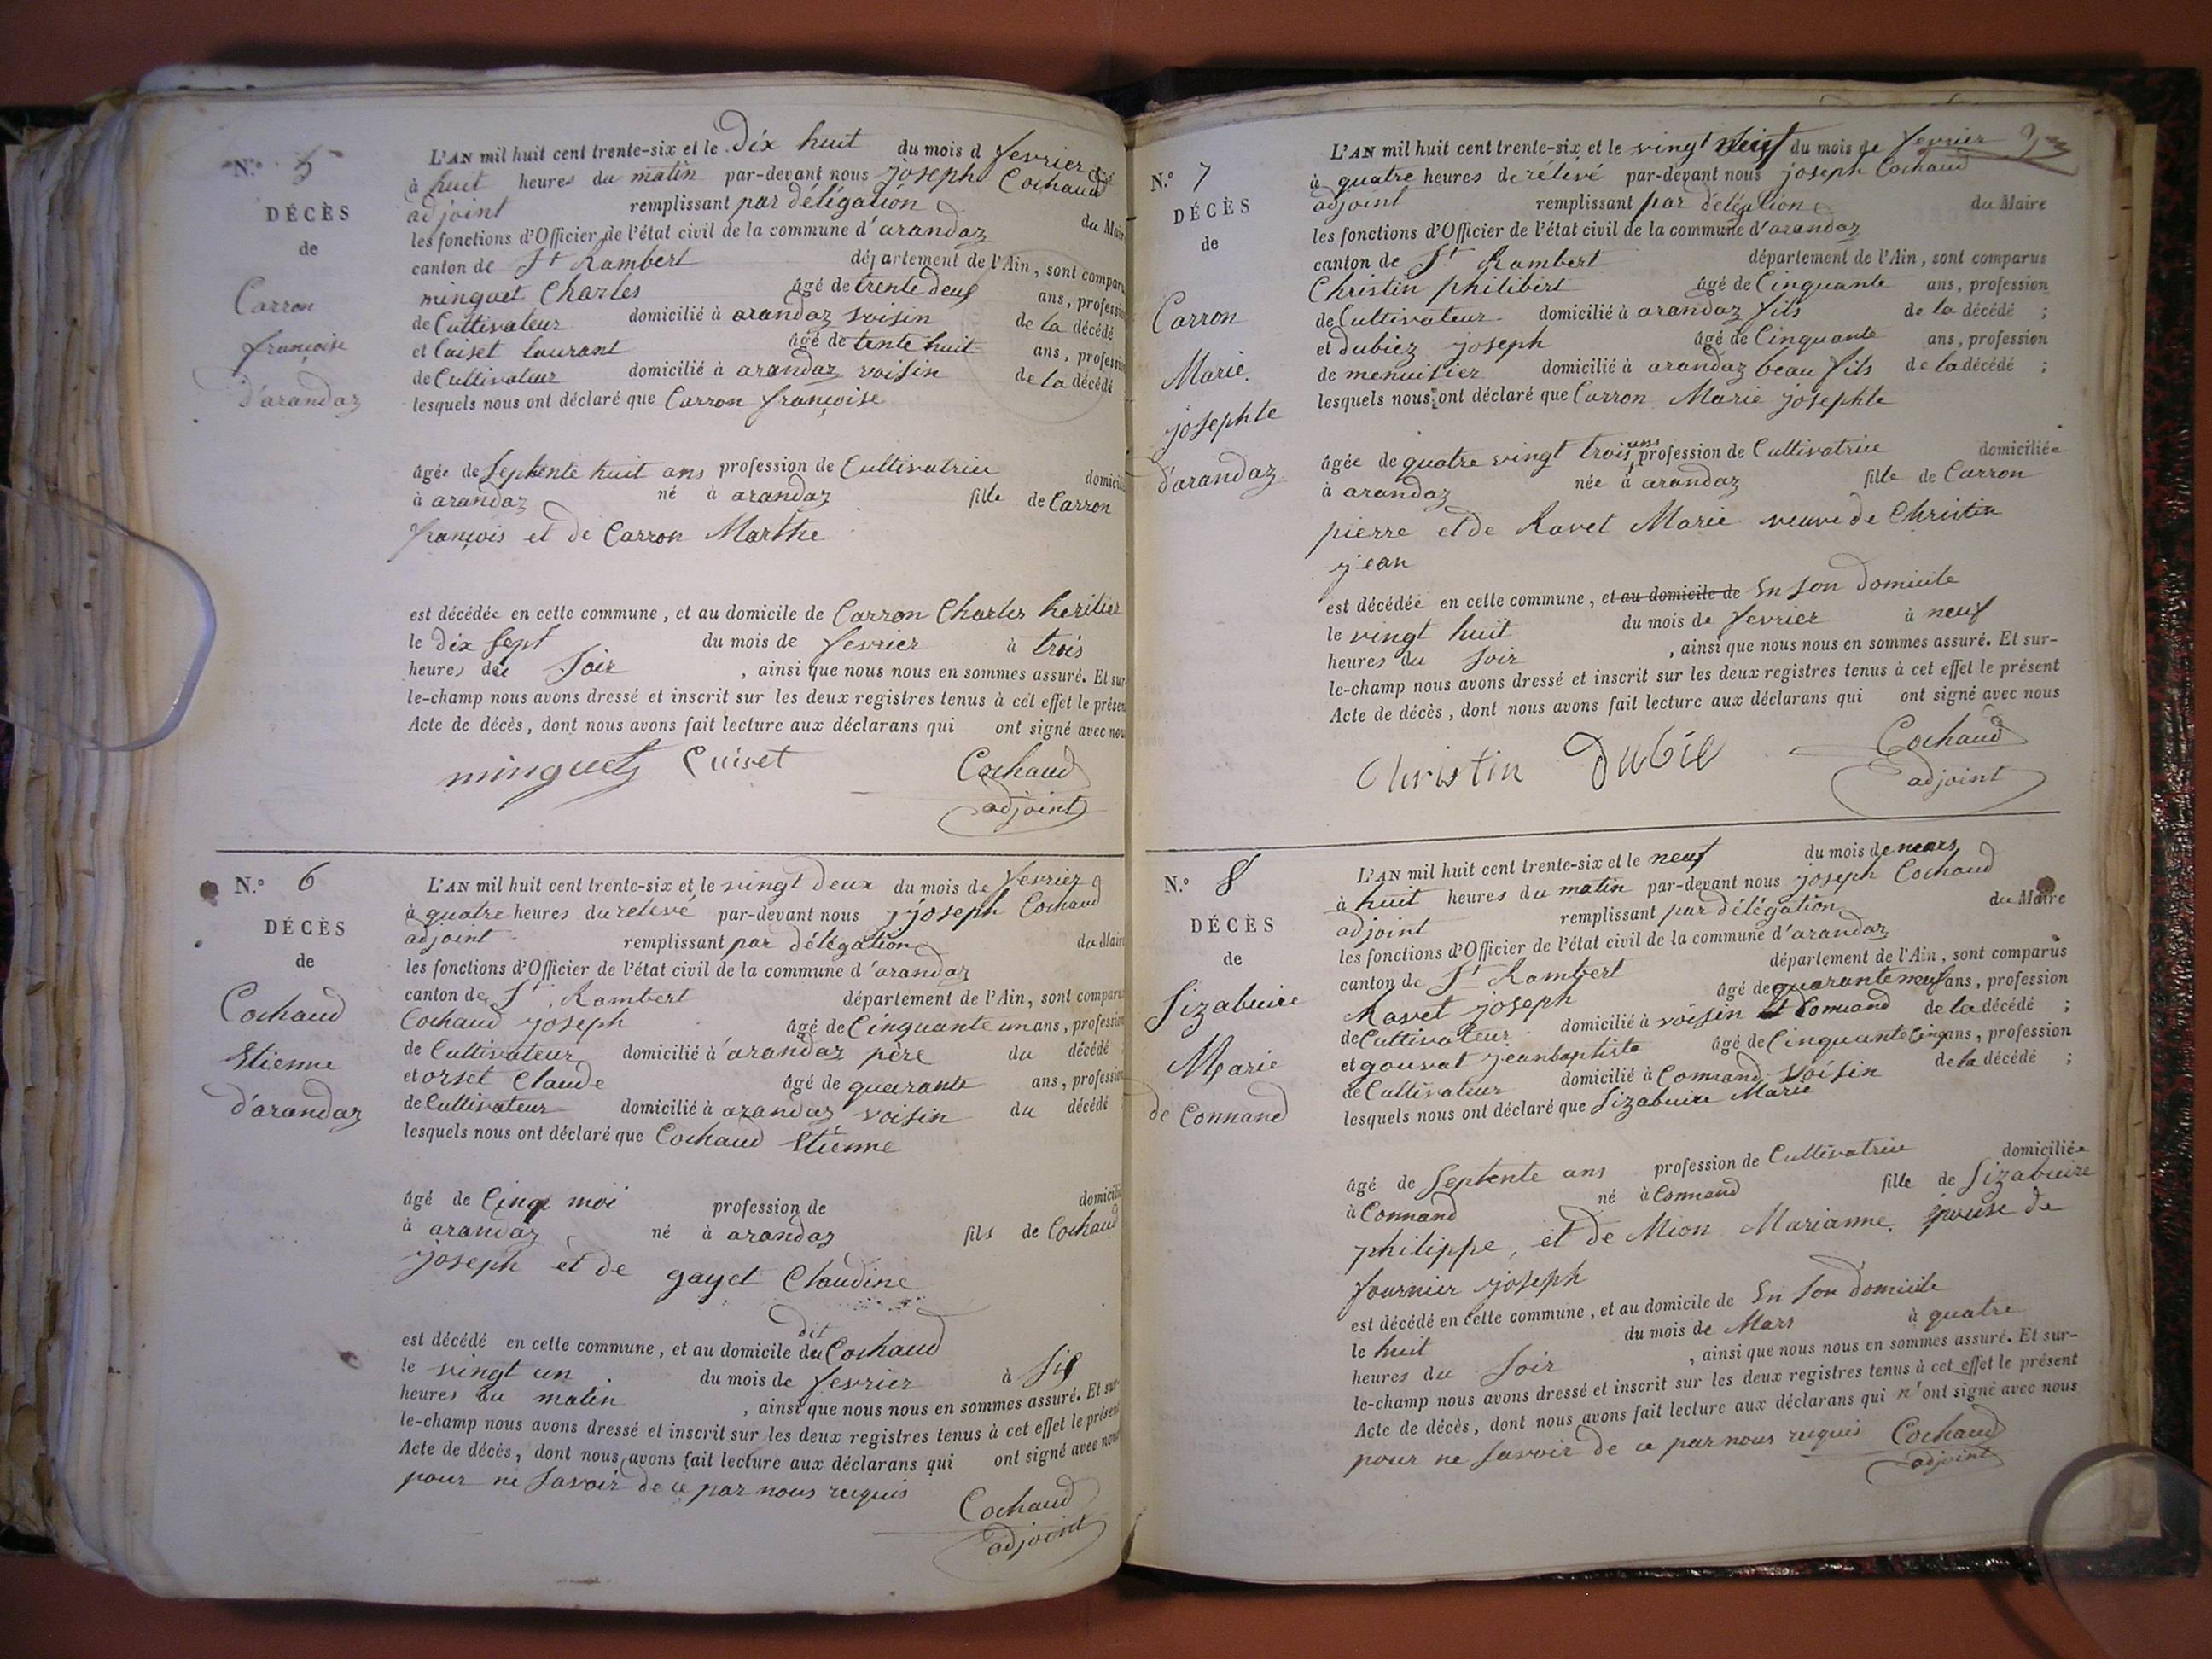 N.° 5
DÉCÈS
de
Carron
françoise
d'arandaz
L'AN mil huit cent trente-six et le Dix huit du mois d fevrier
à huit heures du matin par-devant nous joseph Cochaud
adjoint remplissant par délégation du Mair
les fonctions d'Officier de l'état civil de la commune d'arandaz
canton de St Rambert département de l'Ain, sont compar
minguet Charles âgé de trente deux ans, professi
de Cultivateur domicilié à arandaz voisin de la décédé
et Cuiset laurant âgé de tente huit ans, professi
de Cultivateur domicilié à arandaz voisin de la décédé
lesquels nous ont déclaré que Carron françoise
âgée de Septente huit ans profession de Cultivatrice domicili
à arandaz né à arandaz fille de Carron
françois et de Carron Marthe
est décédée en cette commune, et au domicile de Carron Charles heritier
le Dix Sept du mois de fevrier à trois
heures du Soir , ainsi que nous nous en sommes assuré. Et sur-
le-champ nous avons dressé et inscrit sur les deux registres tenus à cet effet le présen
Acte de décès, dont nous avons fait lecture aux déclarans qui ont signé avec nou
minguet Cuiset Cochaud
adjoint
N.° 6
DÉCÈS
de
Cochaud
Etienne
d'arandaz
L'AN mil huit cent trente-six et le vingt deux du mois de fevrier
à quatre heures du relevé par-devant nous joseph Cochaud
adjoint remplissant par délégation du Mair
les fonctions d'Officier de l'état civil de la commune d'arandaz
canton de St Rambert département de l'Ain, sont comparu
Cochaud joseph âgé de Cinquante un ans, profession
de Cultivateur domicilié à arandaz père du décédé
et orset Claude âgé de quarante ans, profession
de Cultivateur domicilié à arandaz voisin du décédé
lesquels nous ont déclaré que Cochaud Etienne
âgé de Cinq moi profession de domicili
à arandaz né à arandaz fils de Cochaud
joseph et de gayet Claudine
dit
est décédé en cette commune, et au domicile du Cochaud
le vingt un du mois de fevrier à Six
heures du matin , ainsi que nous nous en sommes assuré. Et sur-
le-champ nous avons dressé et inscrit sur les deux registres tenus à cet effet le présent
Acte de décès, dont nous avons fait lecture aux déclarans qui ont signé avec nous
pour ne Savoir de ce par nous requis
Cochaud
adjoint
N.° 7
DÉCÈS
de
Carron
Marie
josephte
d'arandaz
L'AN mil huit cent trente-six et le vingt Neuf du mois de fevrier
à quatre heures de rélévé par-devant nous joseph Cochaud
adjoint remplissant par délégation du Maire
les fonctions d'Officier de l'état civil de la commune d'arandaz
canton de St Rambert département de l'Ain, sont comparus
Christin philibert âgé de Cinquante ans, profession
de Cultivateur domicilié à arandaz fils de la décédé ;
et dubiez joseph âgé de Cinquante ans, profession
de menuisier domicilié à arandaz beau fils de la décédé ;
lesquels nous ont déclaré que Carron Marie josephte
âgée de quatre vingt trois ans profession de Cultivatrice domiciliée
à arandaz née à arandaz fille de Carron
pierre et de Ravet Marie veuve de Christin
jean
est décédée en cette commune, et au domicile de En Son Domicile
le vingt huit du mois de fevrier à neuf
heures du Soir , ainsi que nous nous en sommes assuré. Et sur-
le-champ nous avons dressé et inscrit sur les deux registres tenus à cet effet le présent
Acte de décès, dont nous avons fait lecture aux déclarans qui ont signé avec nous
Christin Dubie Cochaud
adjoint
N.° 8
DÉCÈS
de
Sizabuire
Marie
de Connand
L'AN mil huit cent trente-six et le neuf du mois de mars
à huit heures du matin par-devant nous joseph Cochaud
adjoint remplissant par délégation du Maire
les fonctions d'Officier de l'état civil de la commune d'arandaz
canton de St Rambert département de l'Ain, sont comparus
Ravet joseph âgé de quarante neuf ans, profession
de Cultivateur domicilié à voisin Connand de la décédé ;
et gouvat jeanbaptiste âgé de Cinquante Cinq ans, profession
de Cultivateur domicilié à Connand voisin de la décédé ;
lesquels nous ont déclaré que Sizabuire Marie
âgé de Septente ans profession de Cultivatrice domiciliée
à Connand né à Connand fille de Sizabuire
philippe, et de Mion Marianne, épouse de
fournier joseph
est décédé en cette commune, et au domicile de En Son domicile
le huit du mois de Mars à quatre
heures du Soir , ainsi que nous nous en sommes assuré. Et sur-
le-champ nous avons dressé et inscrit sur les deux registres tenus à cet effet le présent
Acte de décès, dont nous avons fait lecture aux déclarans qui n'ont signé avec nous
pour ne Savoir de ce par nous requis Cochaud
adjoint